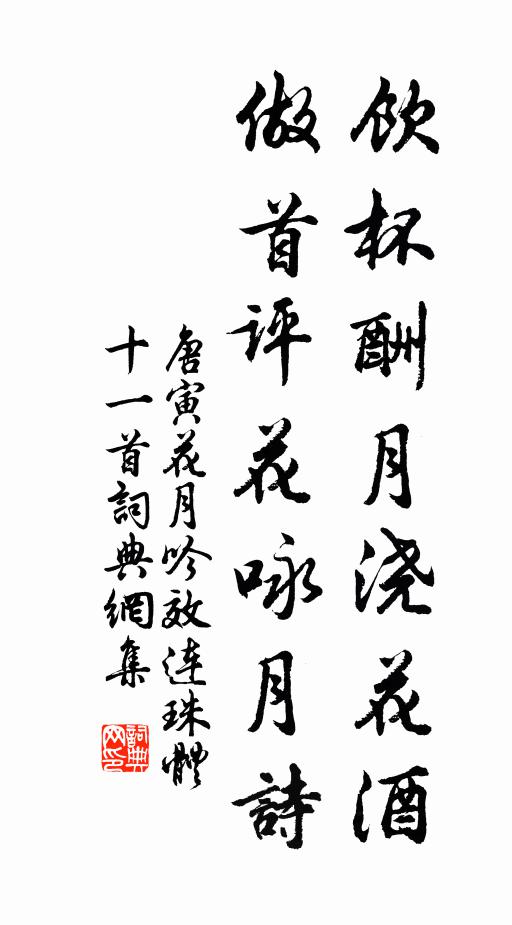 飲杯酬月浇花酒
做首評花咏月詩
唐寅花月吟效连珠體
十一首詞典網集
詞典網印